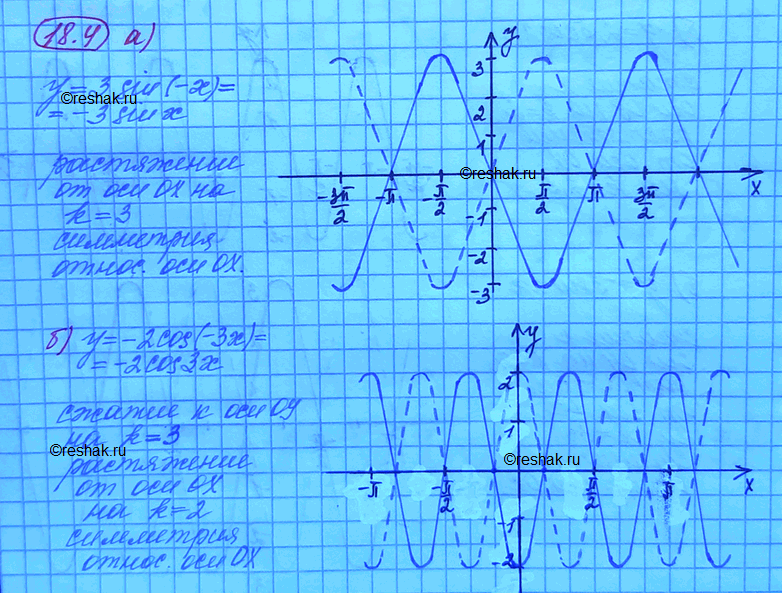 18.4 а)
y = 3 sin(-x) =
= -3 sin x
©reshak.ru
растяжение
от оси OX на
k = 3
симметрия
относ. оси OX.
y
3
2
1
©reshak.ru
-3π/2 -π -π/2 π/2 π 3π/2 x
-1
-2
-3
б) y = -2cos(-3x) =
= -2cos3x
сжатие к оси OY
на k = 3
©reshak.ru
растяжение
от оси OX
на k = 2
симметрия
относ. оси OX
y
2
1
©reshak.ru
-π -π/2 π/2 π x
-1
-2